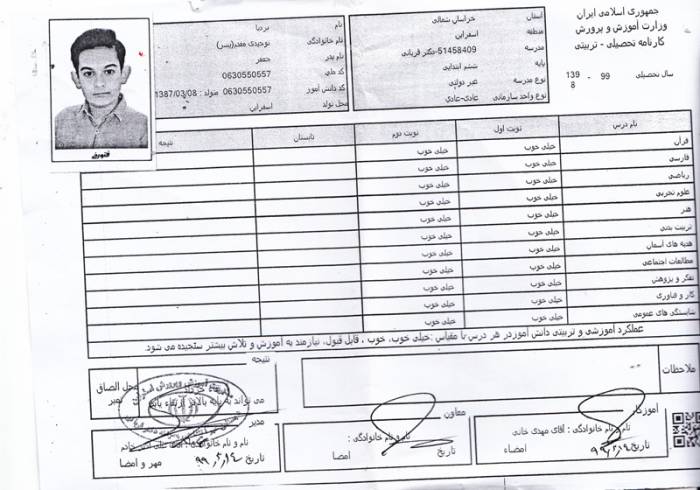 جمهوری اسلامی ایران
وزارت آموزش و پرورش
کارنامه تحصیلی - تربیتی
سال تحصیلی 99 - 1398
استان خراسان شمالی
منطقه اسفراین
مدرسه 51458409-دکتر قربانی
پایه ششم ابتدایی
نوع مدرسه غیر دولتی
نوع واحد سازمانی عادی-عادی
نام بردیا
نام خانوادگی توحیدی مقدم(پسر)
نام پدر جعفر
کد ملی 0630550557
کد دانش آموز 0630550557 متولد : 1387/03/08
محل تولد اسفراین
نام درس نوبت اول نوبت دوم تابستان نتیجه
قرآن خیلی خوب خیلی خوب
فارسی خیلی خوب خیلی خوب
ریاضی خیلی خوب خیلی خوب
علوم تجربی خیلی خوب خیلی خوب
هنر خیلی خوب خیلی خوب
تربیت بدنی خیلی خوب خیلی خوب
هدیه های آسمان خیلی خوب خیلی خوب
مطالعات اجتماعی خیلی خوب خیلی خوب
تفکر و پژوهش خیلی خوب خیلی خوب
کار و فناوری خیلی خوب خیلی خوب
شایستگی های عمومی خیلی خوب خیلی خوب
عملکرد آموزشی و تربیتی دانش آموزدر هر درس با مقیاس :خیلی خوب، خوب ، قابل قبول، نیازمند به آموزش و تلاش بیشتر سنجیده می شود.
ملاحظات
نتیجه
می تواند به پایه بالاتر ارتقاء یابد
محل الصاق
تمبر
آموزگار
نام و نام خانوادگی : آقای مهدی خانی
تاریخ ۹۹,۳,۱۴ امضاء
معاون
نام و نام خانوادگی :
تاریخ امضا
مدیر
نام و نام خانوادگی :
تاریخ ۹۹,۳,۱۴ مهر و امضا